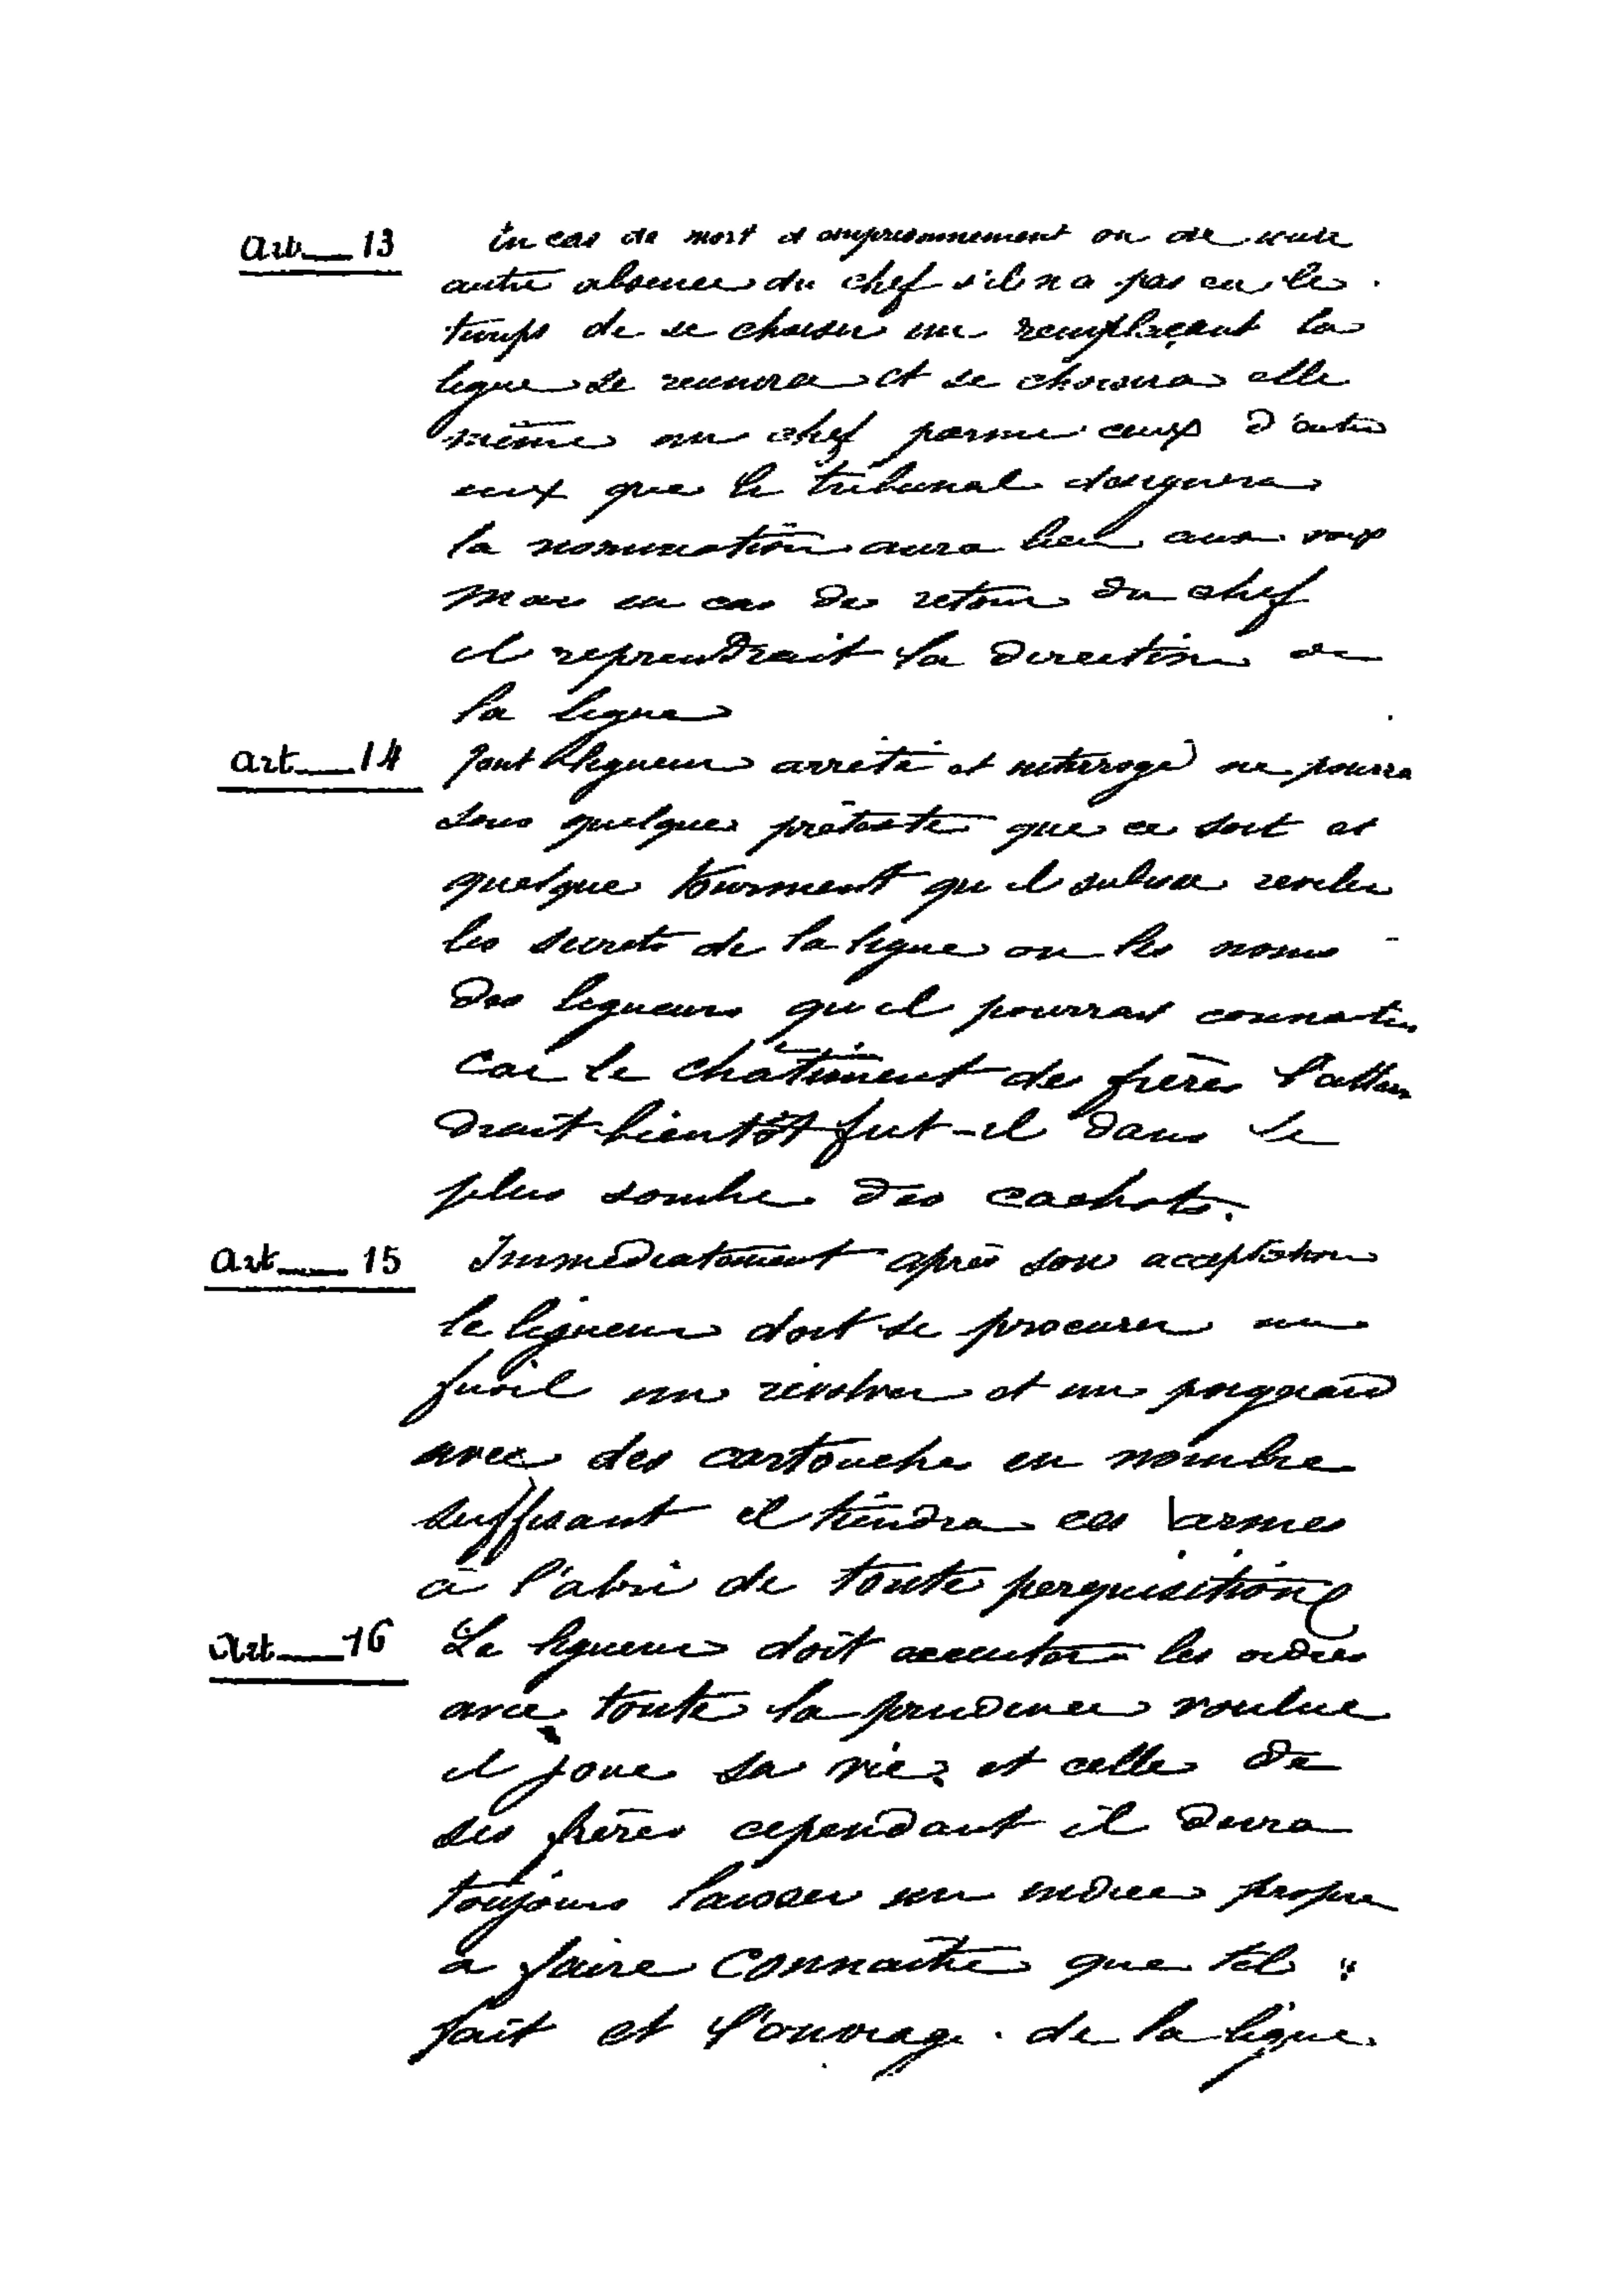 Art 13 En cas de mort d'emprisonnement ou de toute
autre absence du chef s'il n a pas eu le
temps de se choisir un remplaçant la
ligue se reunira et se choisira elle
même un chef parmi ceux d'entre
eux que le tribunal designera
la nomination aura lieu aux voix
mais en cas de retour du chef
il reprendrait la direction de
la ligue
Art 14 Tout ligueur arrêté et interrogé ne pourra
sous quelque prétexte que ce soit et
quelque tourment qu il subisse reveler
les secrets de la ligue ou les noms
des ligueurs qu il pourrait connaitre
car le châtiment de frères l'atten
drait bientôt fut-il dans le
plus sombre des cachots.
Art 15 Immediatement après son acceptation
le ligueur doit se procurer un
fusil un révolver et un poignard
avec des cartouches en nombre
suffisant il tiendra ces armes
à l'abri de toute perquisition
Art 16 Le ligueur doit executer les ordres
avec toute la prudence voulue
il joue sa vie et celle de
ses frères cependant il devra
toujours laisser un indice propre
a faire connaitre que tel
fait et l'ouvrage de la ligue.